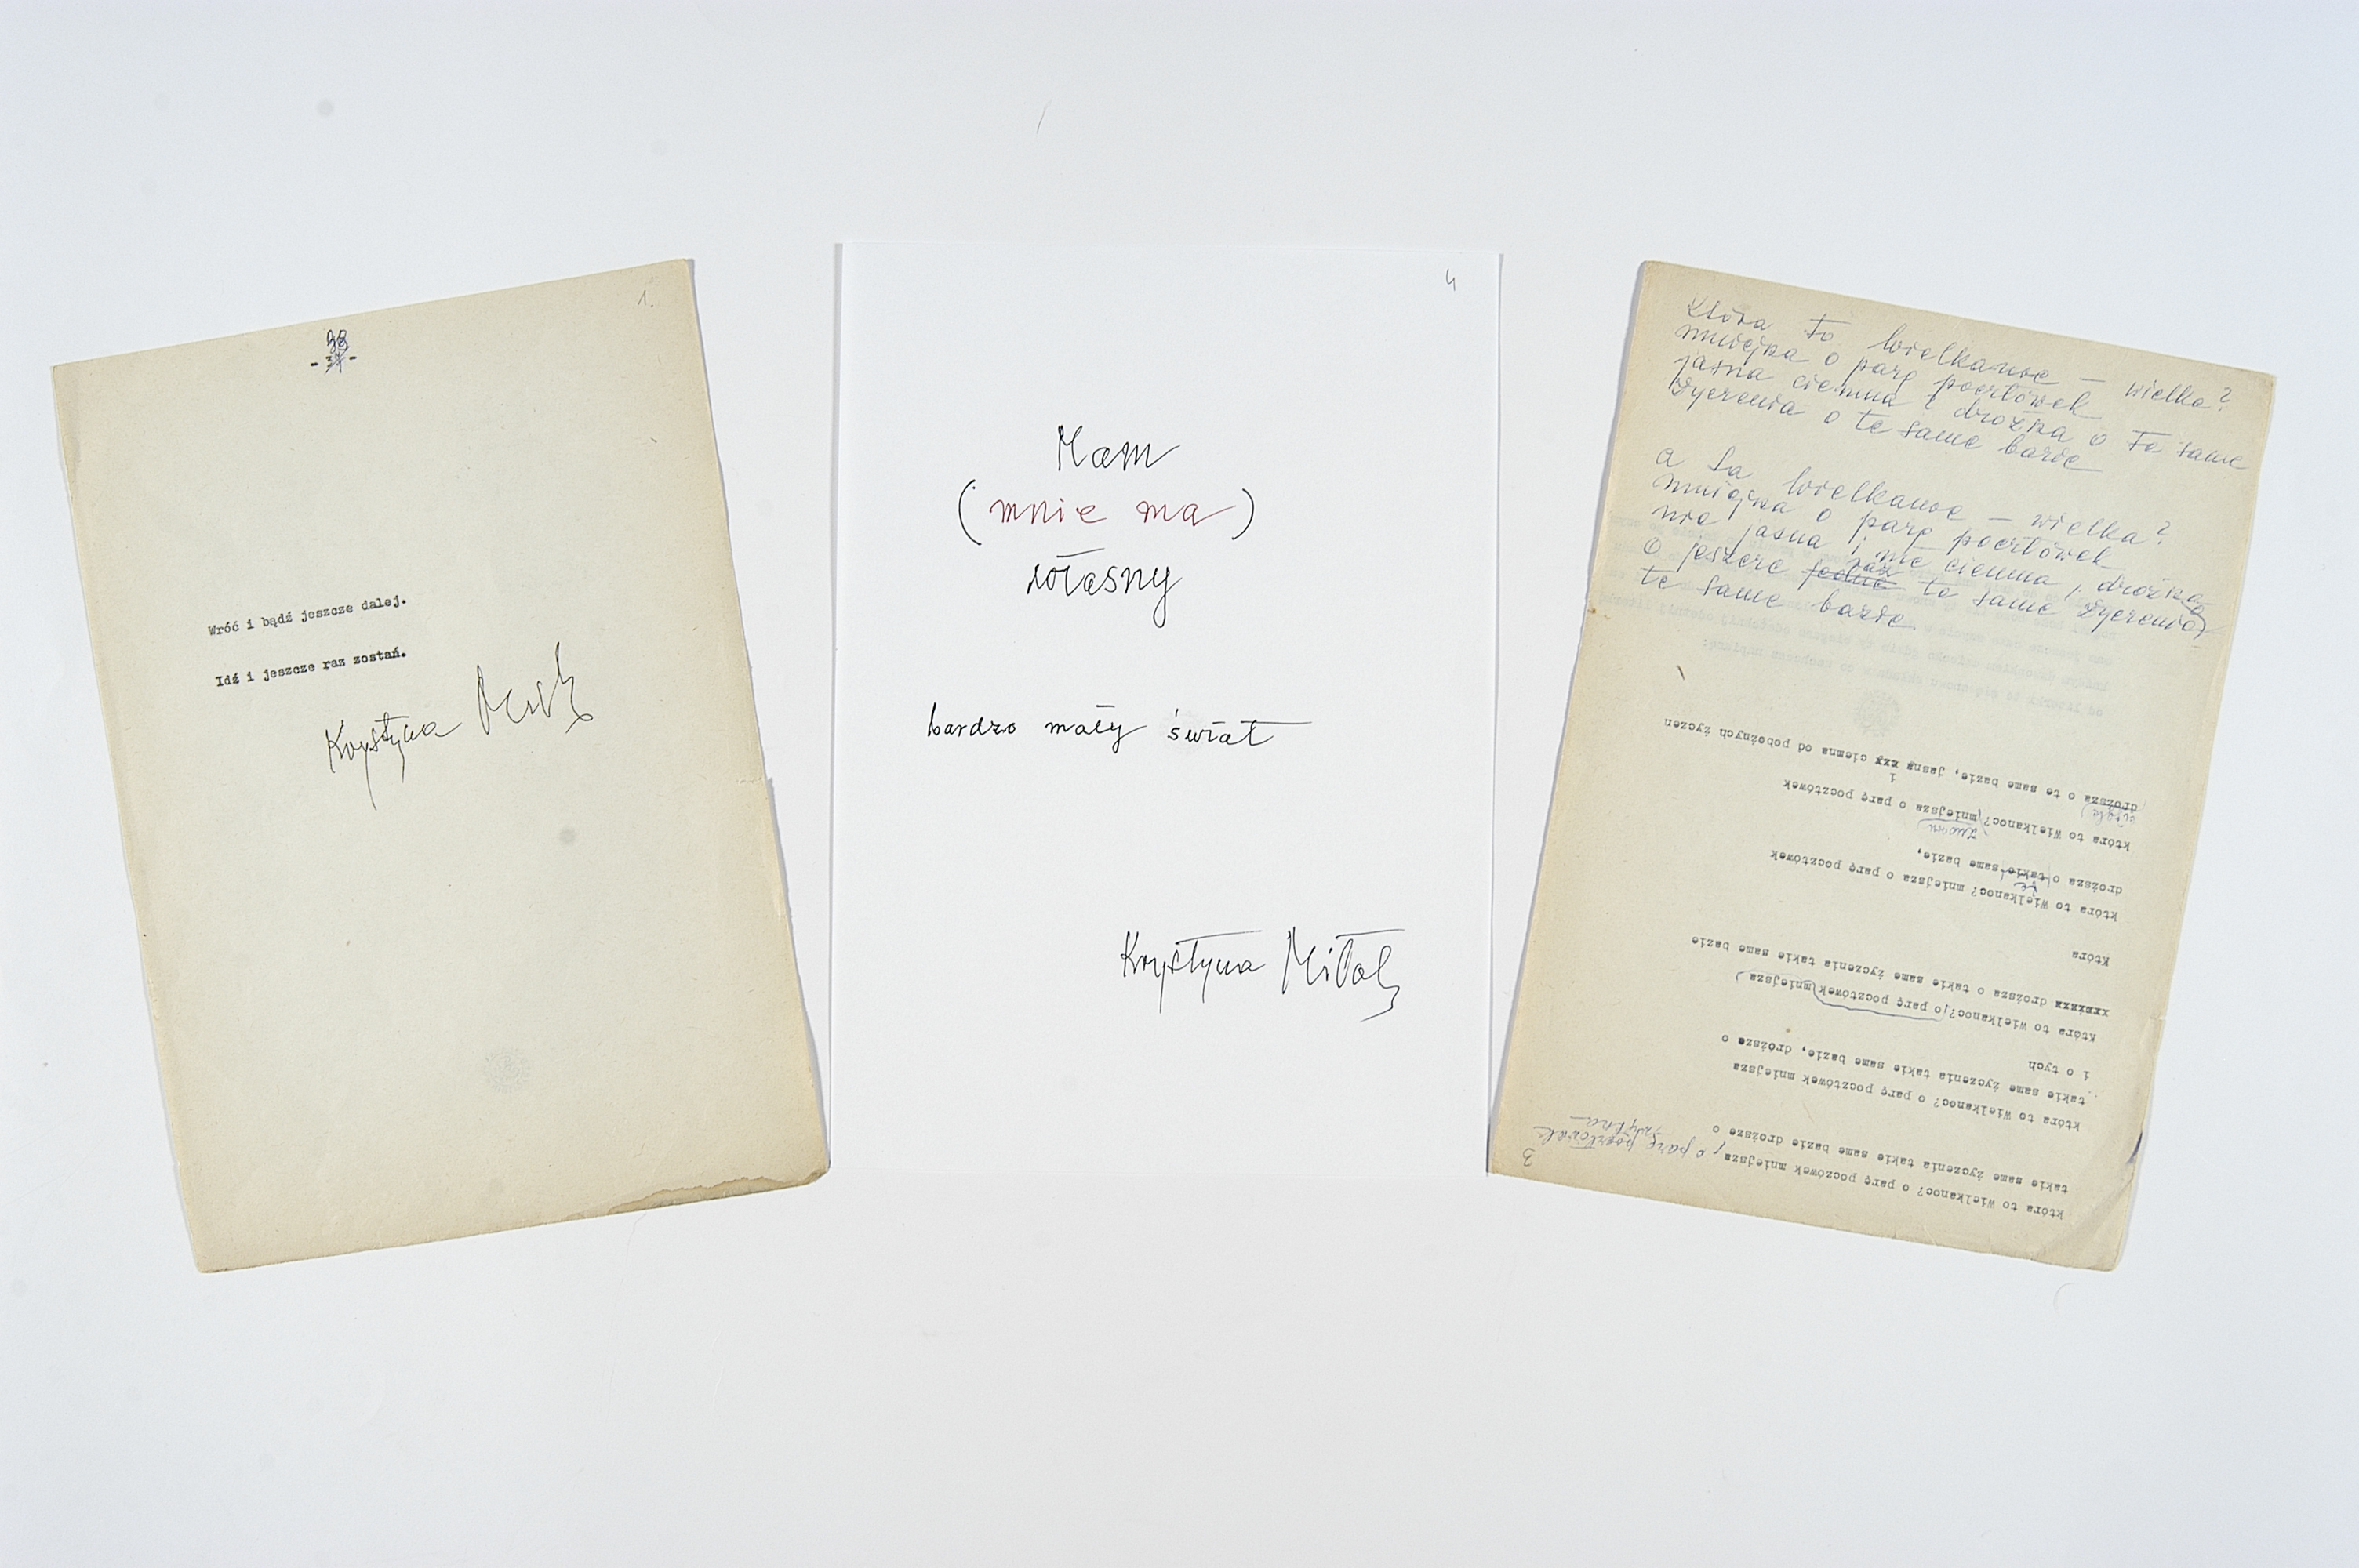 1.
98
- 37 -
Wróć i bądź jeszcze dalej.
Idź i jeszcze raz zostań.
Krystyna
4
Mam
(mnie ma)
własny
bardzo mały świat
Krystyna Miłob
Która to Wielkanoc – wielka?
mniejsza o parę pocztówek
jasna ciemna i droższa o te same
życzenia o te same bazie
a ta Wielkanoc – wielka?
mniejsza o parę pocztówek
nie jasna i nie ciemna, droższa
o jeszcze jedne raz te same życzenia
te same bazie.
3
która to Wielkanoc? o parę poczówek mniejsza, o parę pocztówek
takie same życzenia takie same bazie droższe o
która to Wielkanoc? o parę pocztówek mniejsza
takie same życzenia takie same bazie, droższe o
i o tych
która to Wielkanoc? o parę pocztówek mniejsza
xxxixxx droższa o takie same życzenia takie same bazie
Która
która to Wielkanoc? mniejsza o parę pocztówek
droższa o takie te same bazie,
która to Wielkanoc? mniejsza o parę pocztówek
znowu
droższa o te same bazie, jasna xxx i ciemna od pobożnych życzeń